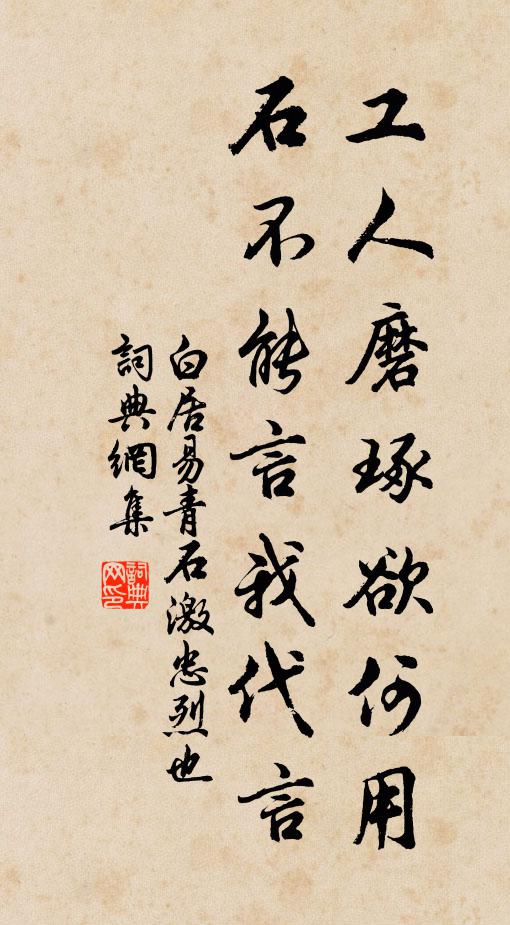 工人磨琢欲何用
石不能言我代言
白居易青石激忠烈也
詞典網集
詞典网印